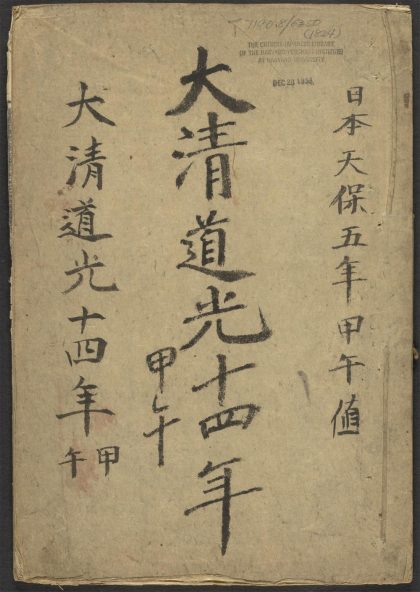 T 7100.8/6350
(1824)
THE CHINESE-JAPANESE LIBRARY
OF THE HARVARD-YENCHING INSTITUTE
AT HARVARD UNIVERSITY
DEC 28 1938
日本天保五年甲午值
大清道光十四年
甲午
大清道光十四年甲午